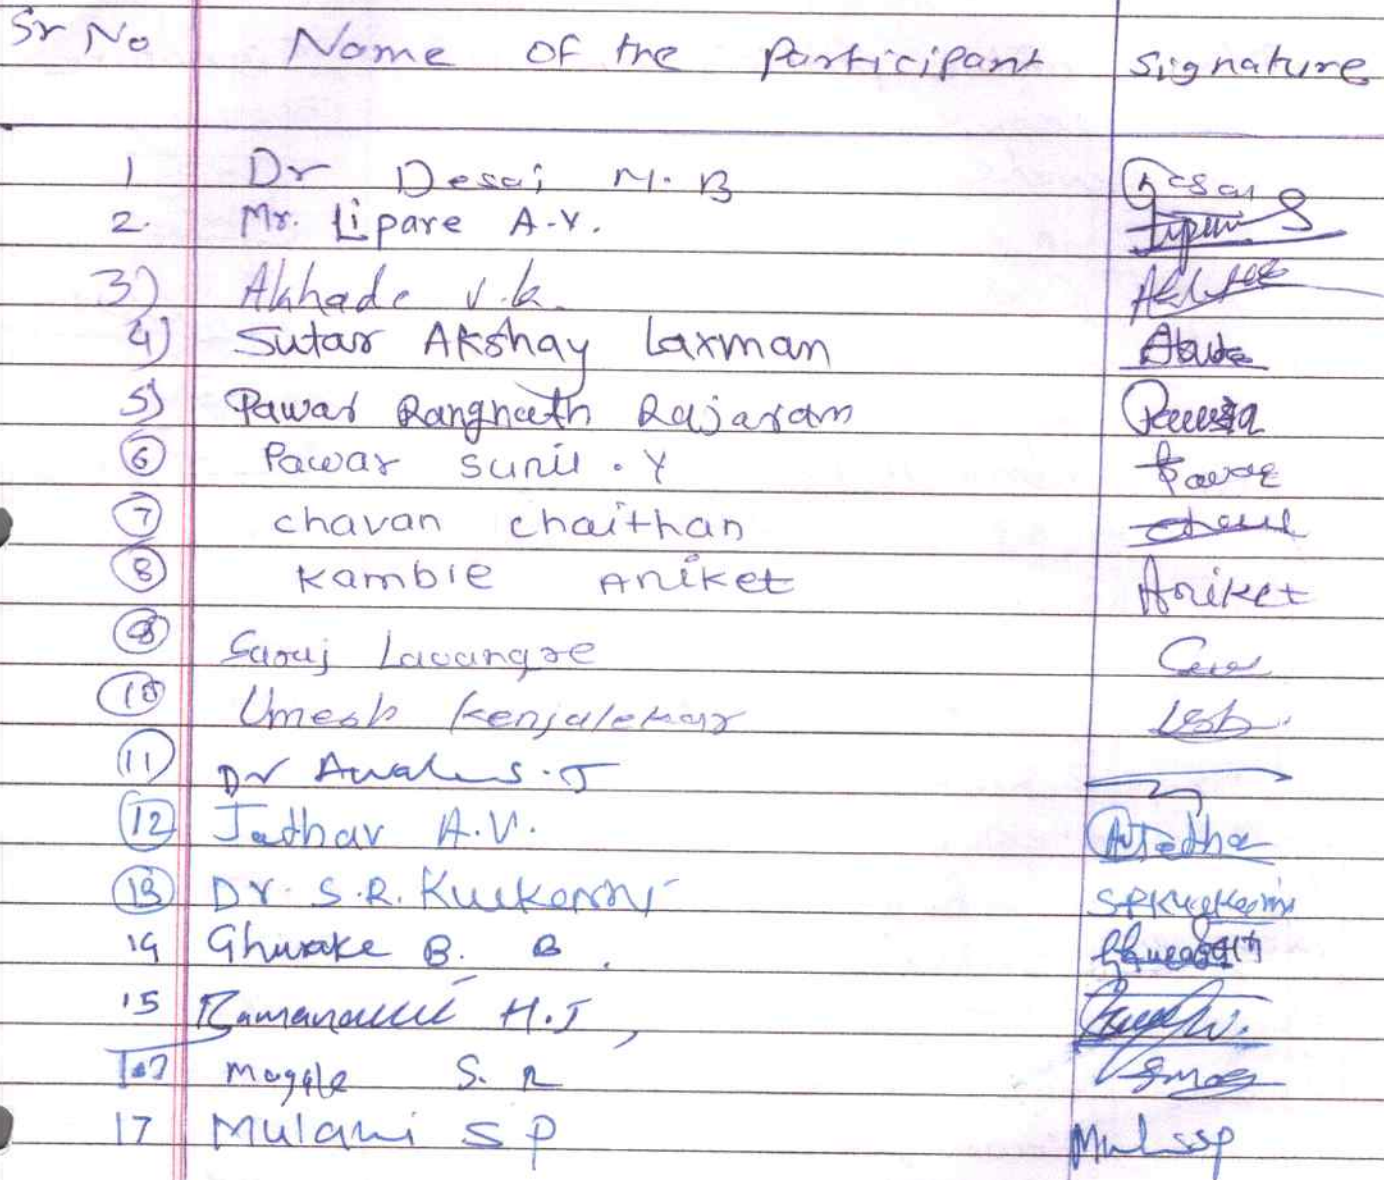 Sr No Name of the Participant Signature
1 Dr Desai M. B Desai
2. Mr. Lipare A.Y.
3) Akhade V.k.
4) Sutar Akshay Laxman
5) Pawar Rangnath Rajaram
6 Pawar Sunil . Y Pawar
7 chavan chaithan
8 Kamble Aniket Aniket
9 Saroj Lavangre
10 Umesh Kenjalekar
11 Dr S. J
12 Jadhav A.V.
13 Dr. S.R. Kulkarni SRKulkarni
14 Ghurake B. B.
15 H.I
Mogale S. R
17 Mulani S P